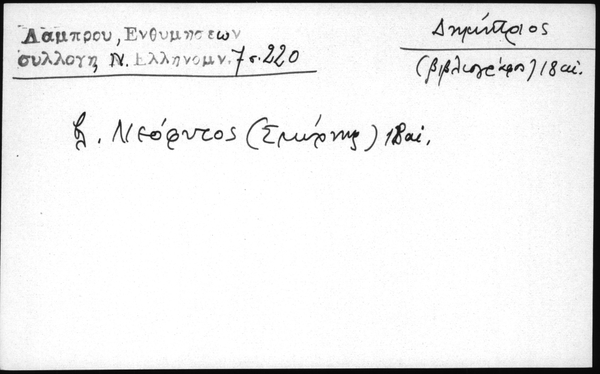 Λαμπρου, Ενθυμησεων
συλλογη Ν. Ελληνομν. 7 σ. 220
Δημήτριος
(βιβλιογράφος) 18 αἰ.
Νεόφυτος (Σμύρνης) 18 αἰ.